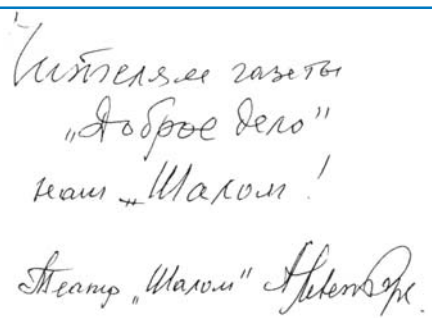 Читателям газеты
„Доброе дело"
наш „Шалом!
Театр „Шалом"